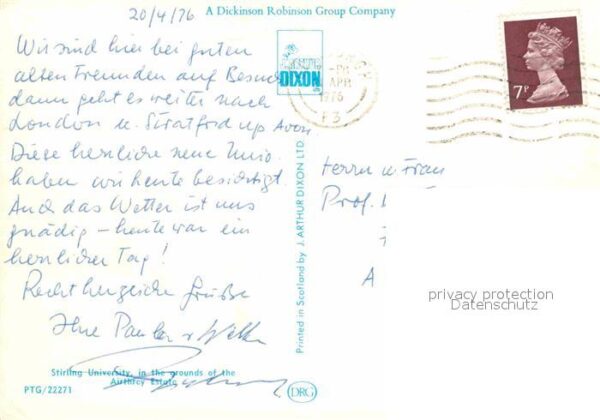 20/4/76
A Dickinson Robinson Group Company
Wir sind hier bei guten
alten Freunden auf Besuch
dann geht es weiter nach
London u. Stratford up Avon
Diese herrliche neue Univ.
haben wir heute besichtigt.
Auch das Wetter ist uns
gnädig – heute war ein
herrlicher Tag!
Recht herzliche Grüße
Ihre
DIXON
APR
1976
7P
Herrn u Frau
Prof.
A
Printed in Scotland by J. ARTHUR DIXON LTD.
privacy protection
Datenschutz
Stirling University, in the grounds of the
Airthrey Estate
PTG/22271
DRG